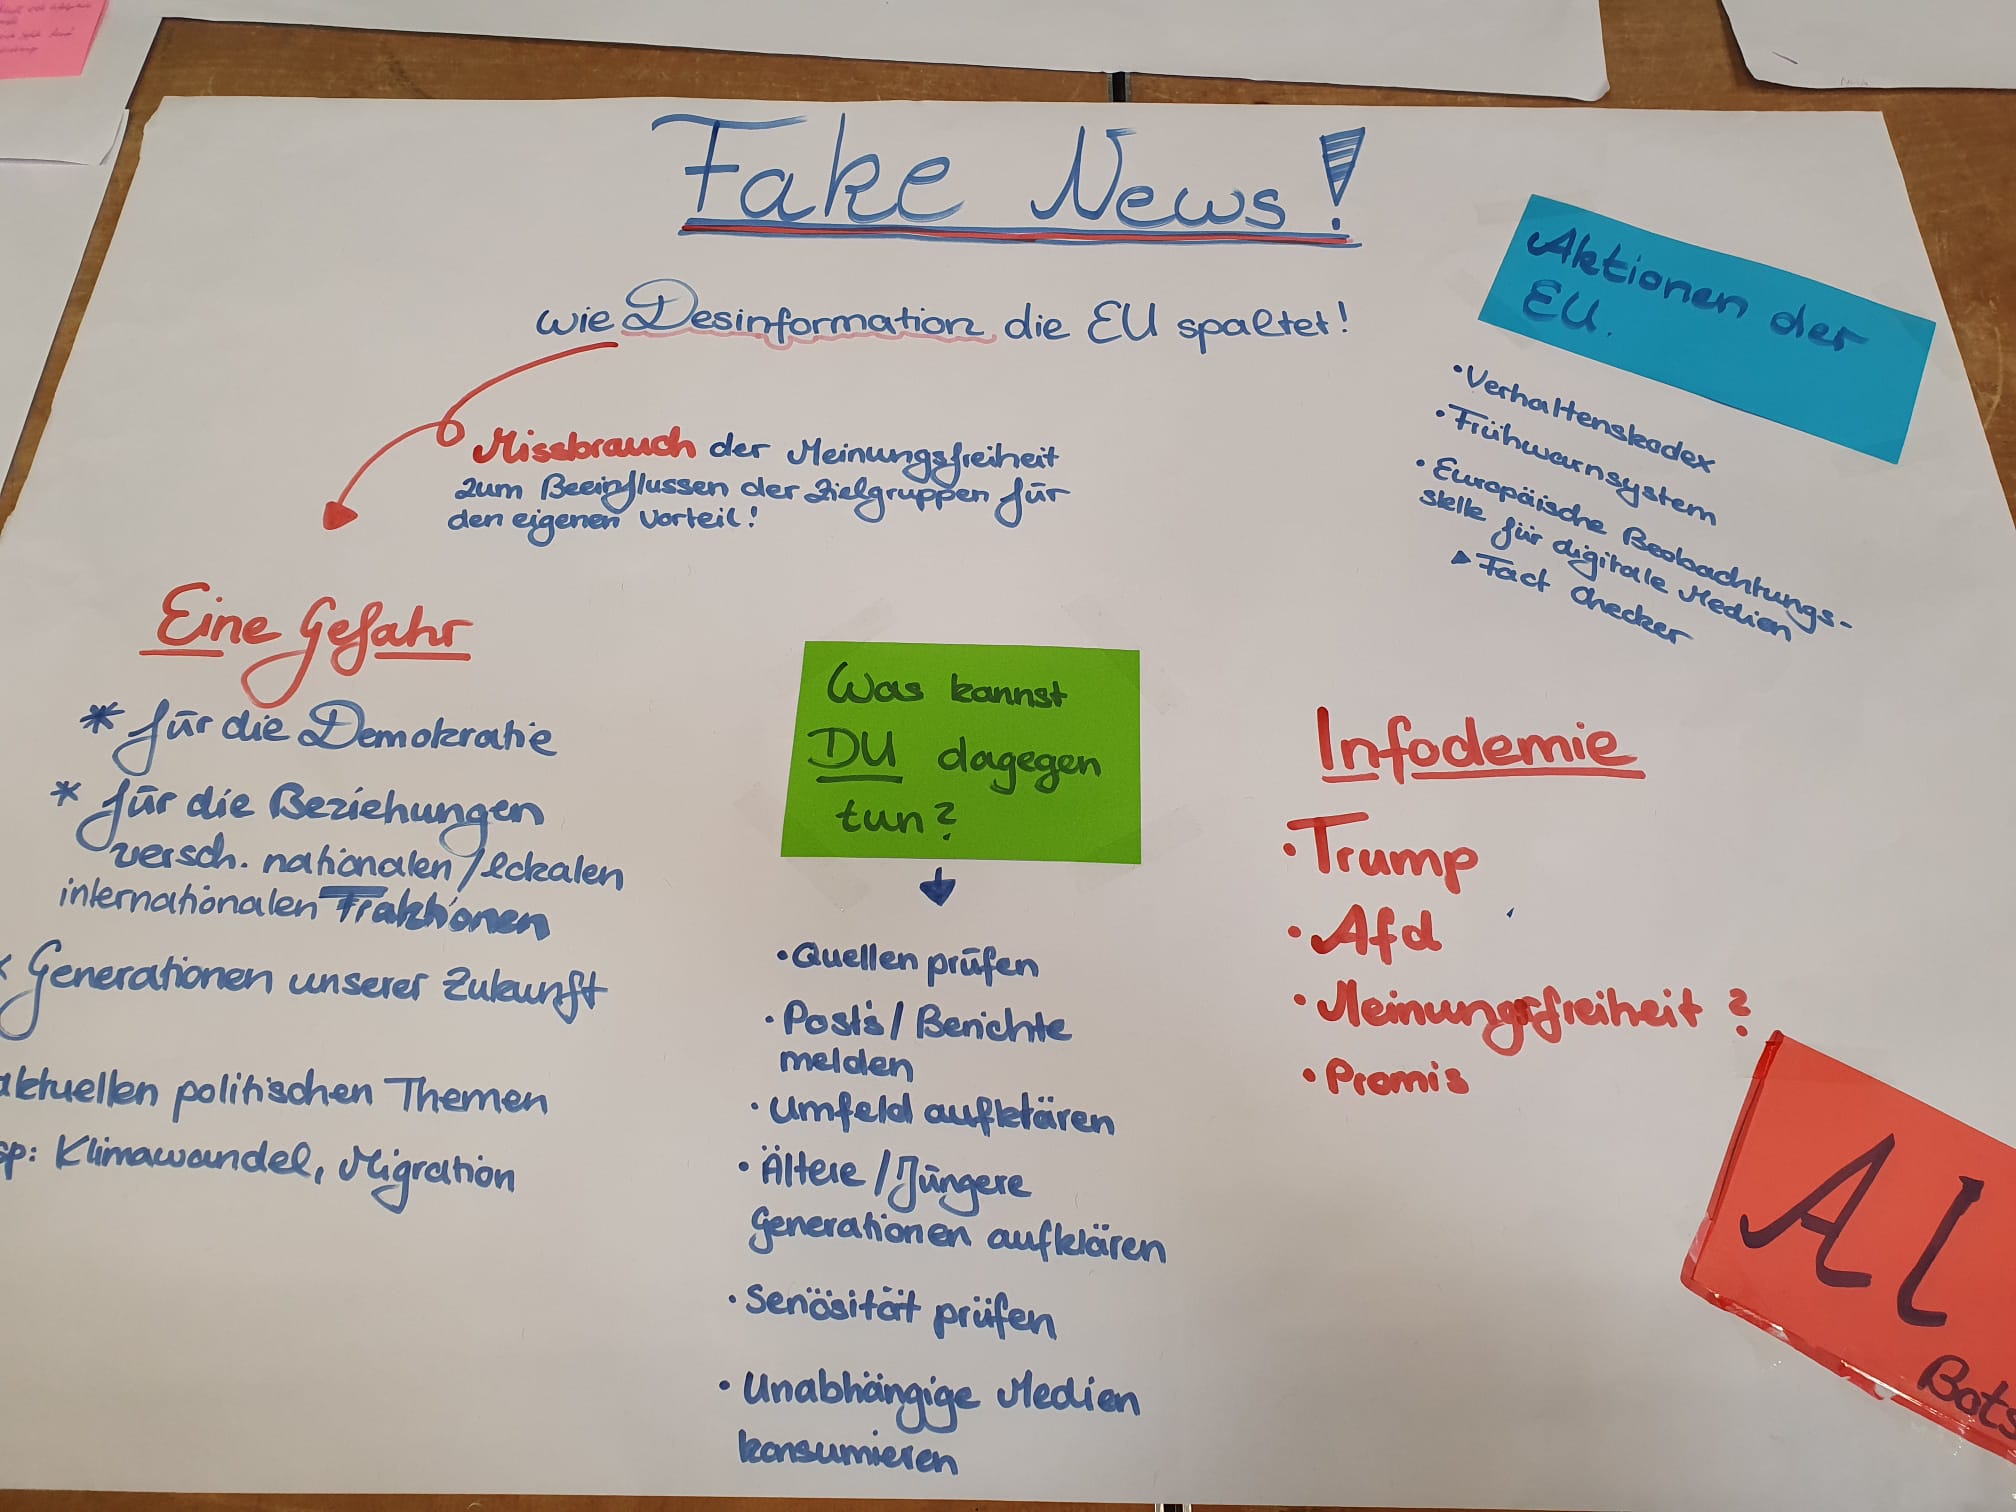 Fake News!
wie Desinformation die EU spaltet!
Missbrauch der Meinungsfreiheit
zum Beeinflussen der Zielgruppen für
den eigenen Vorteil!
Aktionen der
EU.
• Verhaltenskodex
• Frühwarnsystem
• Europäische Beobachtungs-
stelle für digitale Medien
▶ Fact Checker
Eine Gefahr
* für die Demokratie
* für die Beziehungen
versch. nationalen/lokalen
internationalen Fraktionen
* Generationen unserer Zukunft
aktuellen politischen Themen
sp: Klimawandel, Migration
Was kannst
DU dagegen
tun?
• Quellen prüfen
• Posts / Berichte
melden
• Umfeld aufklären
• Ältere / Jüngere
Generationen aufklären
• Seriösität prüfen
• Unabhängige Medien
konsumieren
Infodemie
• Trump
• Afd
• Meinungsfreiheit?
• Promis
AI
Bots